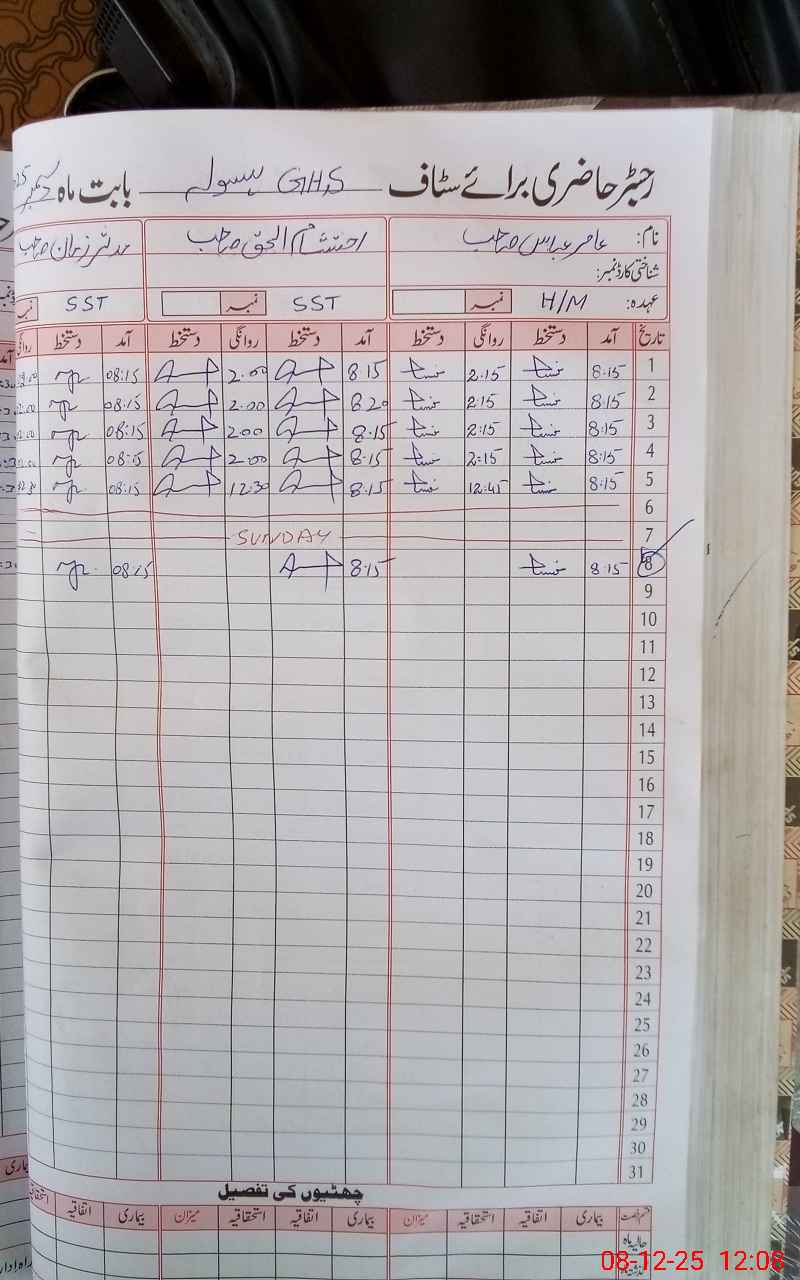 رجسٹر حاضری برائے سٹاف GHS بابت ماہ دسمبر
نام: عامر عباس صاحب احتشام الحق صاحب مدثر زمان صاحب
شناختی کارڈ نمبر:
عہدہ: H/M نمبر SST نمبر SST
تاریخ آمد دستخط روانگی دستخط آمد دستخط روانگی دستخط آمد دستخط روانگی
1 8:15 2:15 8 15 2.00 08:15
2 8:15 2:15 8 20 2.00 08:15
3 8:15 2:15 8:15 2.00 08:15
4 8:15 2:15 8:15 2.00 08:15
5 8:15 12:45 8:15 12:30 08:15
6
7 SUNDAY
8 8:15 8:15 08:15
9
10
11
12
13
14
15
16
17
18
19
20
21
22
23
24
25
26
27
28
29
30
31
چھٹیوں کی تفصیل
قسم رخصت بیماری اتفاقیہ استحقاقیہ میزان بیماری اتفاقیہ استحقاقیہ میزان بیماری اتفاقیہ
حالیہ ماہ
08-12-25 12:08